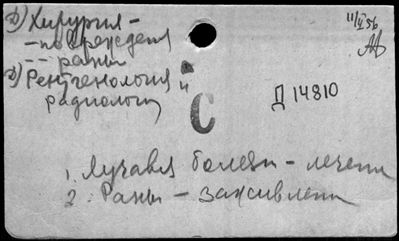 Д) Хирургия -
- поврежденя
- - раны
Д) Рентгенология и
радиология
11/V 56
С
Д 14810
1. Лучавая болезн - лечени
2. Раны - заживлени